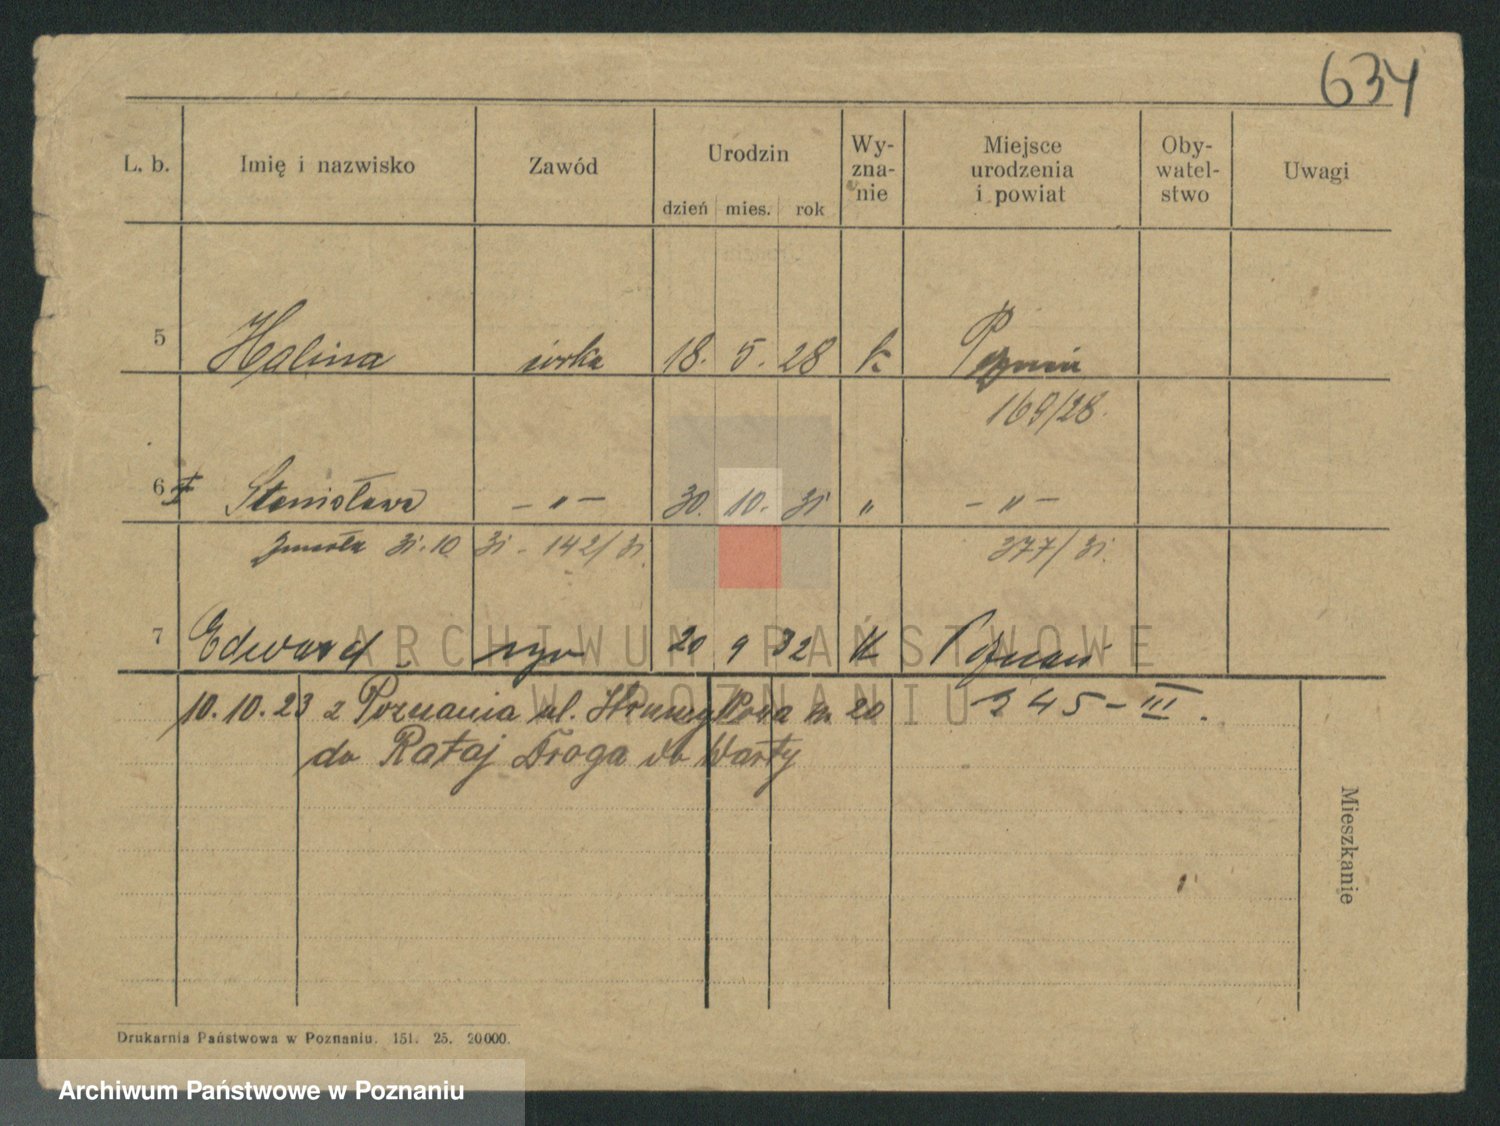 634
L. b. Imię i nazwisko Zawód Urodzin Wy-zna-nie Miejsce urodzenia i powiat Oby-watel-stwo Uwagi
dzień mies. rok
5 Halina córka 18. 5. 28 k Poznań
169/28.
6 Stanisława — „ — 30. 10. 31 „ — „ —
zmarła 31.10 31 - 142/31. 377/31.
7 Edward syn 20 9 32 K Poznań
ARCHIWUM PAŃSTWOWE
W POZNANIU
10.10.23 z Poznania ul. 20 345-III.
do Rataj Droga do Warty
Mieszkanie
Drukarnia Państwowa w Poznaniu. 151. 25. 20000.
Archiwum Państwowe w Poznaniu